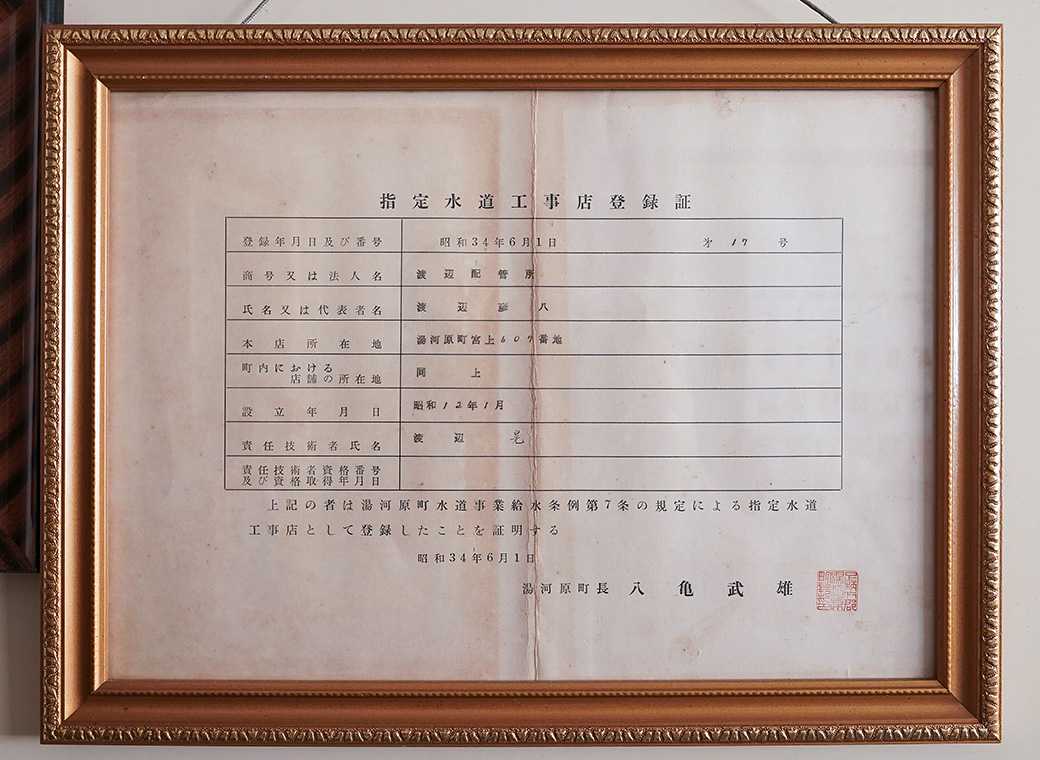 指定水道工事店登録証
登録年月日及び番号 昭和34年6月1日 第17号
商号又は法人名 渡辺配管所
氏名又は代表者名 渡辺彦八
本店所在地 湯河原町宮上607番地
町内における
店舗の所在地 同上
設立年月日 昭和12年1月
責任技術者氏名 渡辺
責任技術者資格番号
及び資格取得年月日
上記の者は湯河原町水道事業給水条例第7条の規定による指定水道
工事店として登録したことを証明する
昭和34年6月1日
湯河原町長 八亀武雄